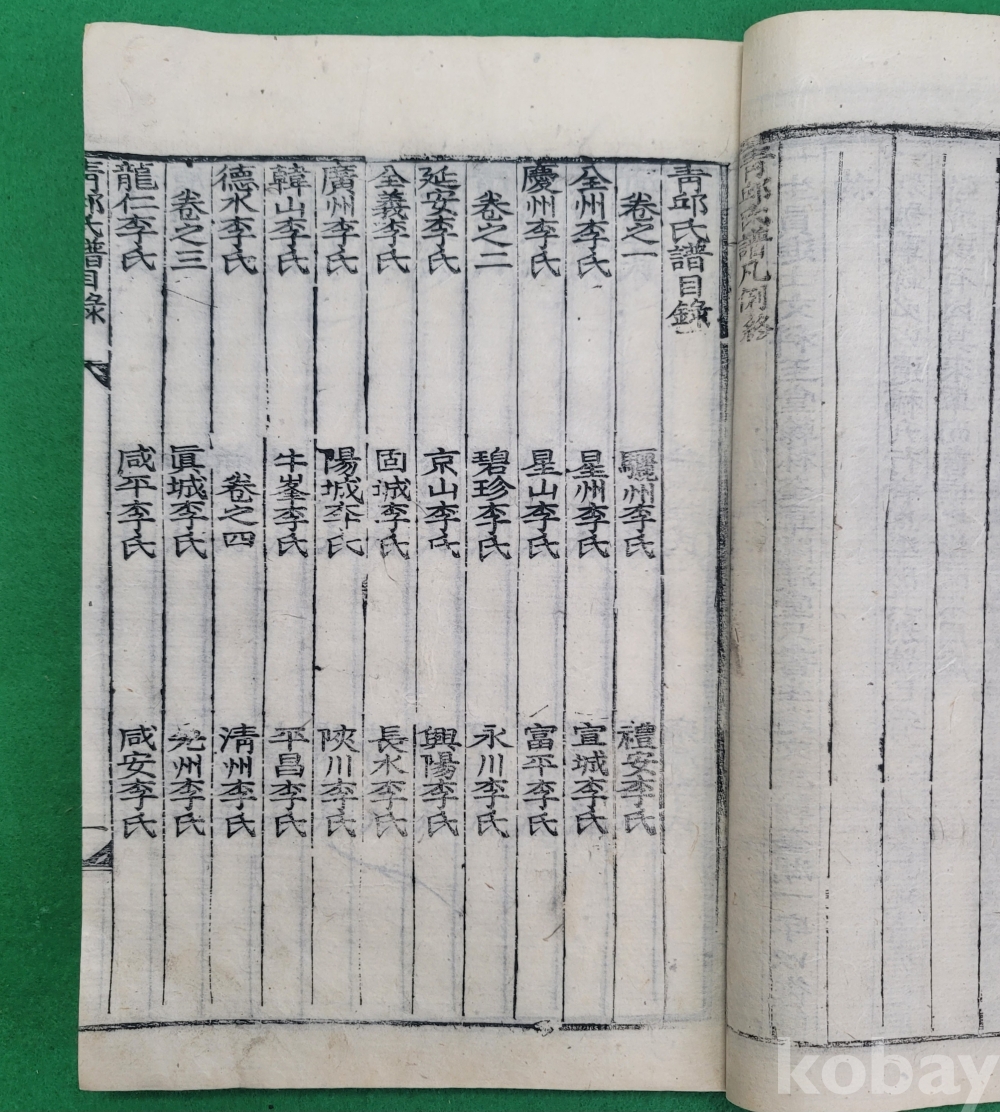 青邱氏譜凡例終
青邱氏譜目錄
卷之一 驪州李氏 禮安李氏
全州李氏 星州李氏 宣城李氏
慶州李氏 星山李氏 富平李氏
卷之二 碧珍李氏 永川李氏
延安李氏 京山李氏 興陽李氏
全義李氏 固城李氏 長水李氏
廣州李氏 陽城李氏 陜川李氏
韓山李氏 牛峯李氏 平昌李氏
德水李氏 卷之四 清州李氏
卷之三 眞城李氏 光州李氏
龍仁李氏 咸平李氏 咸安李氏
青邱氏譜目錄 一
kobay